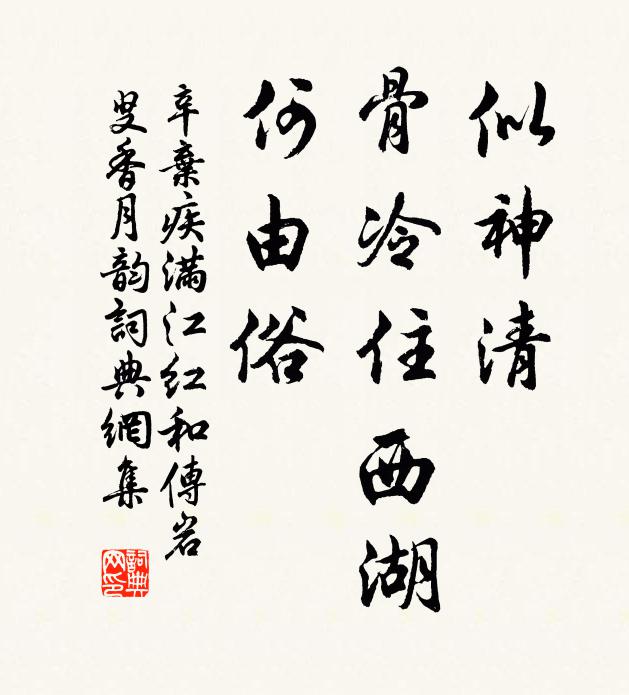 似神清
骨冷住西湖
何由俗
辛棄疾滿江紅和傅岩
叟香月韵詞典網集
詞典网印